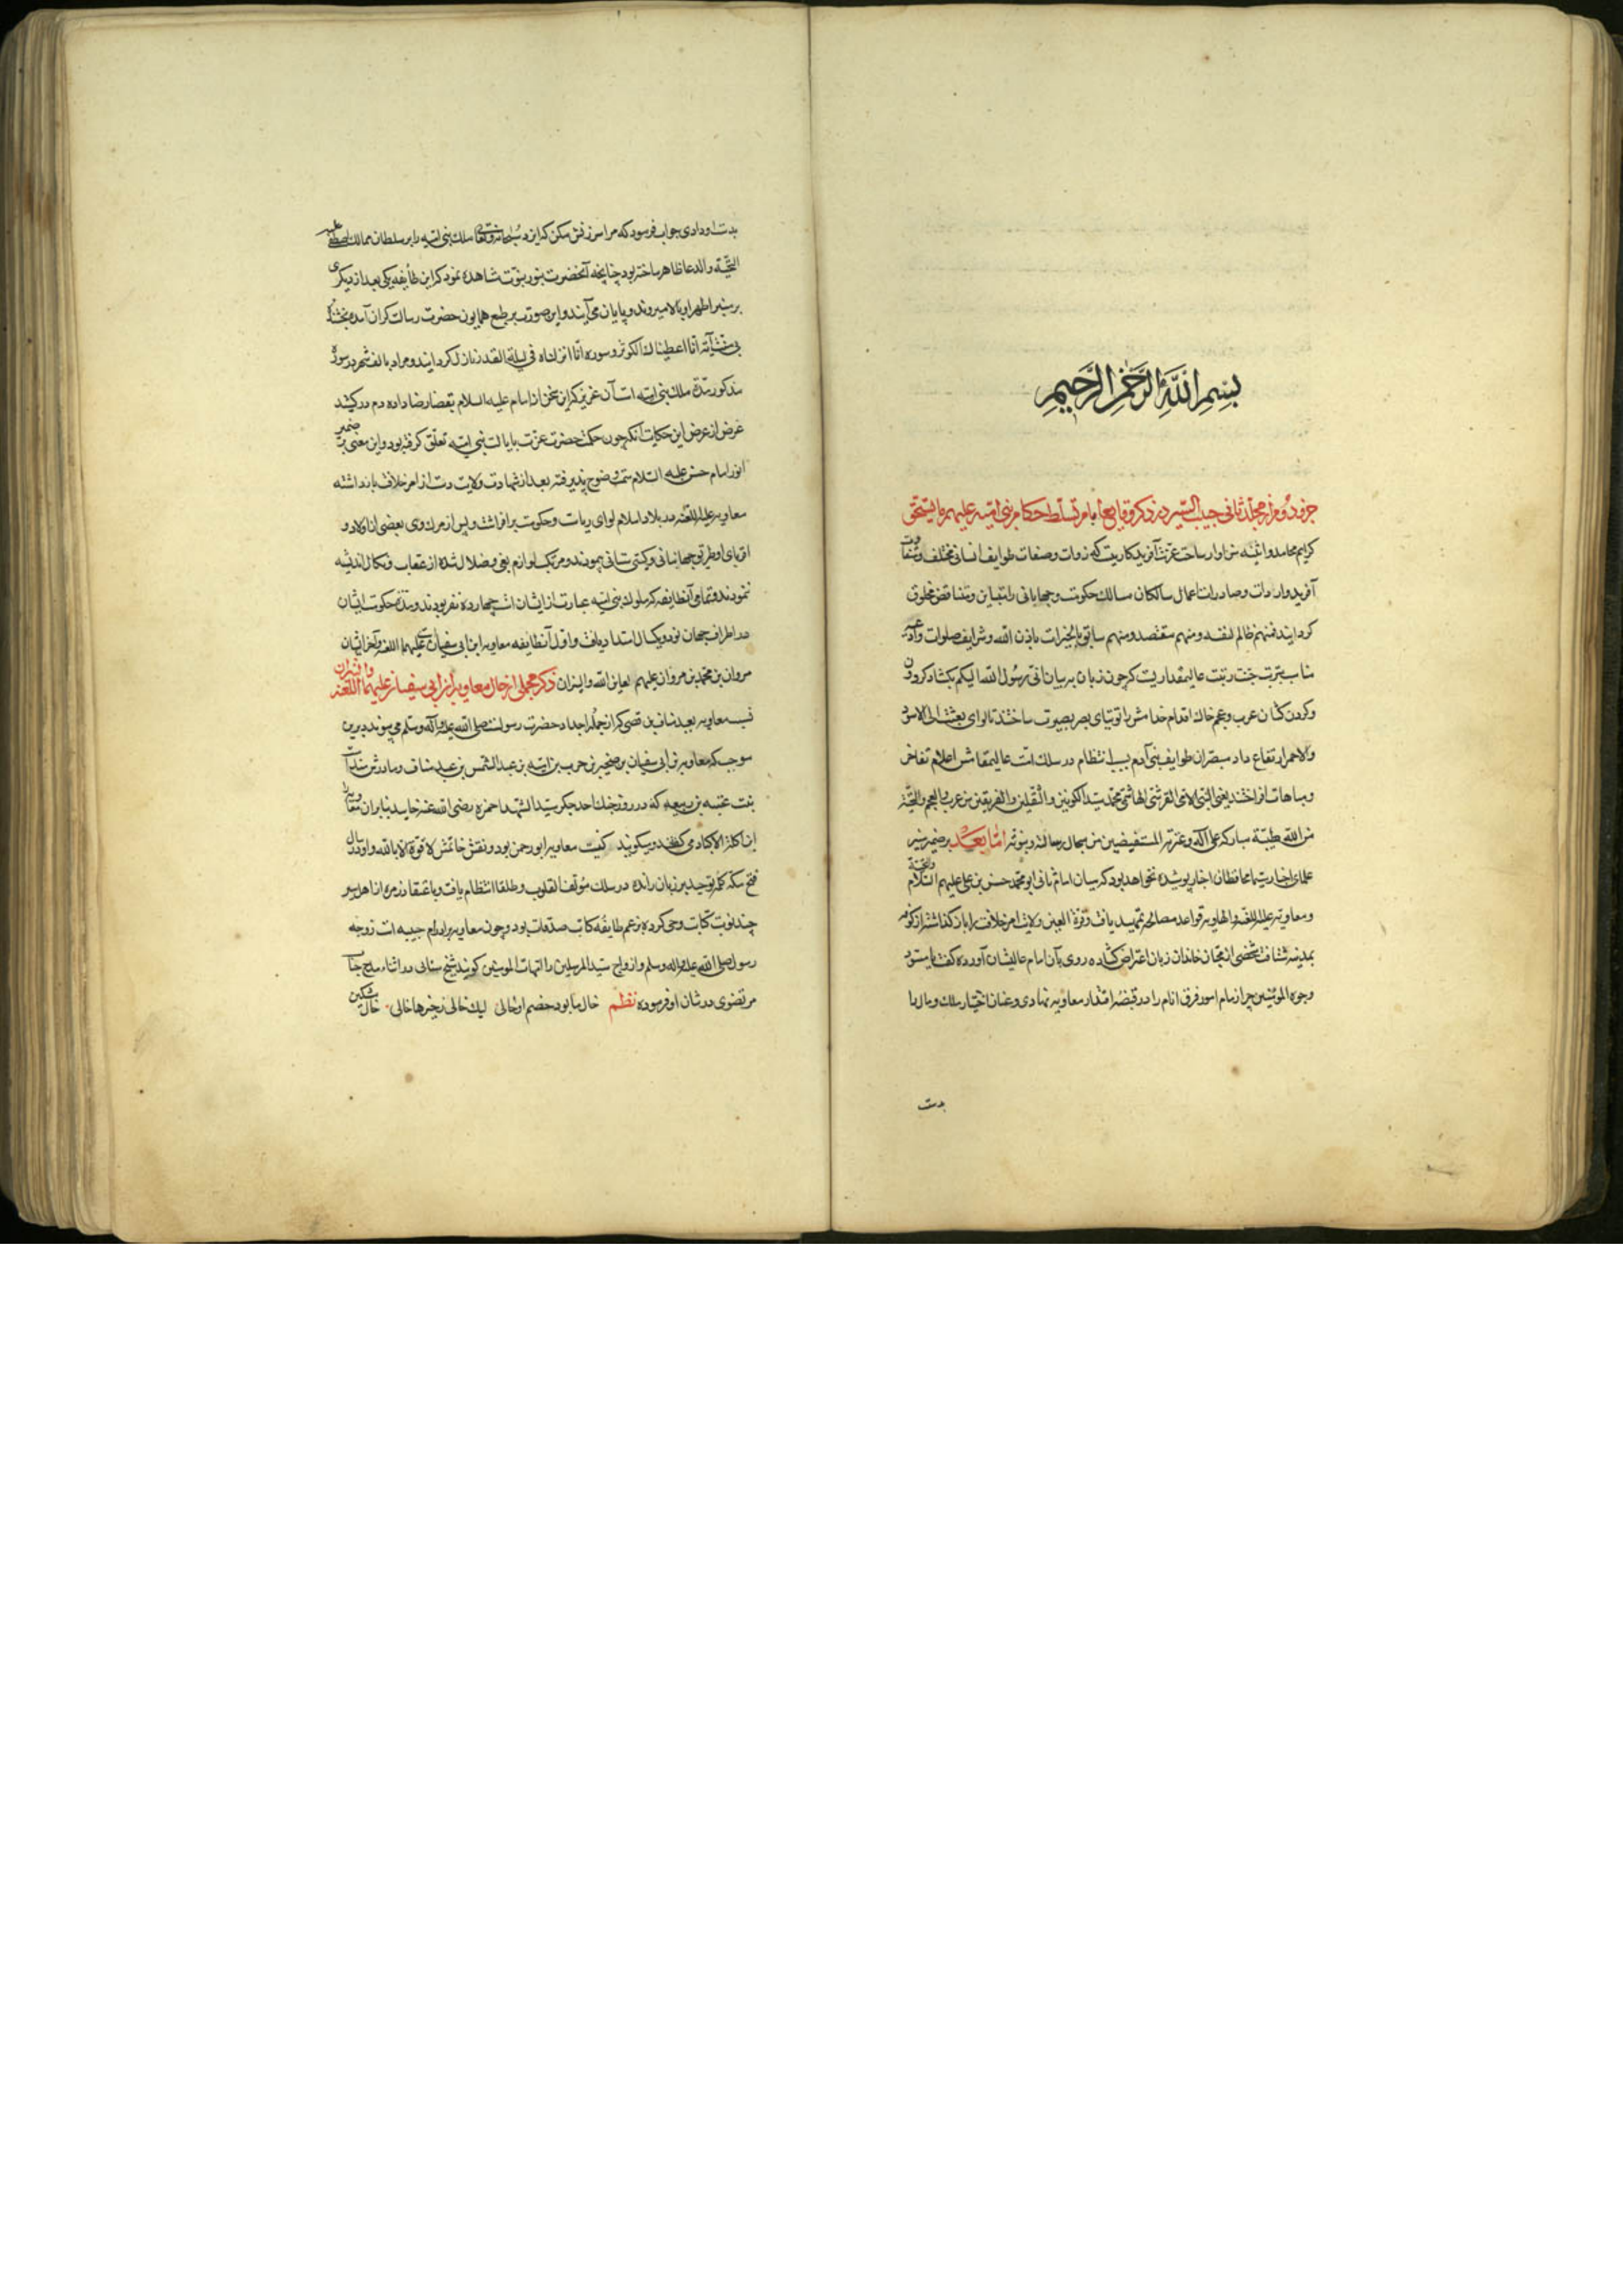 بسم الله الرحمن الرحیم
جزو دوم از مجلد ثانی حبیب السیر در ذکر وقایع ایام تسلط حکام بنی امیه علیهم ما یستحق
کرایم محامد و اثنیه سزاوار ساحت عزت آفریدکاریست که ذوات و صفات طوایف انسانی مختلف و متفاوت
آفرید و واردات و صادرات اعمال سالکان مسالک حکومت و جهانبانی را متباین و متناقض مخلوق
کردانید فمنهم ظالم لنفسه و منهم مقتصد و منهم سابق بالخیرات باذن الله و شرایف صلوات
مناسب تربت جنت رتبت عالیمقداریست که چون زبان بر بیان انی رسول الله الیکم بکشاد کردون
و کردن کشان عرب و عجم خاک اقدام خدامش را توتیای بصر بصیرت ساختند تا لوای بعثت الی الاسود
والاحمر ارتفاع داد مبصران طوایف بنی آدم بسبب انتظام در سلک امت عالیمقامش اعلام تفاخر
و مباهات افراختند یعنی النبی الامی القرشی الهاشمی محمد سید الکونین و الثقلین و الفریقین من عرب و العجم و التحیة
من الله طیبة مبارکه علی آله و عترته المستفیضین من سجال رسالته و نبوته اما بعد بر ضمیر منیر
علمای اخبار سیما محافظان اخبار پوشیده نخواهد بود که میان امام ثانی ابو محمد حسن بن علی علیهم السلام والتحیة
و معاویه علیه اللعنه والهاویه قواعد مصالحه تمهید یافت و قرة العین ولایت امر خلافت را باز کذاشته از کوفه
بمدینه شتافت شخصی از محبان خاندان زبان اعتراض کشاده روی بآن امام عالیشان آورده کفت یا مسود
وجوه المومنین چرا زمام امور فرق انام را در قبضه اقتدار معاویه نهادی و عنان اختیار ملک و مال را
بدست
بدست او دادی جواب فرمود که مرا سرزنش مکن که ایزد سبحانه و تعالی ملک بنی امیه را بر سلطان ممالک اصطفا علیه
التحیة والدعا ظاهر ساخته بود چنانچه آنحضرت بنور نبوت مشاهده نمود که این طایفه یکی بعد از دیکری
بر منبر اطهر او بالا میروند و پایان می آیند و این صورت بر طبع همایون حضرت رسالت کران آمده
آیة انا اعطیناک الکوثر و سوره انا انزلناه فی لیلة القدر نازل کردانید و مراد بالف شهر در سوره
مذکور مدة ملک بنی امیه است آن عزیز که این سخن از امام علیه السلام بقضا رضا داده دم درکشید
غرض از عرض این حکایت آنکه چون حکمت حضرت عزت بایالت بنی امیه تعلق کرفته بود و این معنی بر ضمیر
انور امام حسن علیه السلام سمت وضوح پذیرفته بعد از شهادت ولایت دست از امر خلافت باز داشته
معاویه علیه اللعنه در بلاد اسلام لوای ریاست و حکومت برافراشت و پس از مرک وی بعضی از اولاد و
اقربای او طریق جهانبانی و کیتی ستانی پیمودند و مرتکب لوازم بغی و ضلال شده از عقاب و نکال اندیشه
ننمودند و تمامی آنطایفه که ملوک بنی امیه عبارت از ایشان است چهارده نفر بودند و مدة حکومت ایشان
در اطراف جهان نود و یکسال امتداد یافت و اول آنطایفه معاویه ابن ابی سفیان علیهما اللعنه و آخر ایشان
مروان بن محمد بن مروان علیهم لعاین الله والنیران ذکر مجملی از حال معاویه ابن ابی سفیان علیهما اللعنه والنیران
نسب معاویه بعبد مناف بن قصی که از جمله اجداد حضرت رسولست صلی الله علیه و آله وسلم می پیوندد برین
موجب که معاویه بن ابی سفیان بن صخر بن حرب بن امیه بن عبد الشمس بن عبد مناف و مادرش هند است
بنت عتبه بن ربیعه که در روز جنک احد جکر سید الشهدا حمزه رضی الله عنه خایید بنابران معاویه را
ابن آکلة الاکباد می کفتند و میکویند کنیت معاویه ابو رحمن بود و نقش خاتمش لا قوة الا بالله و او در سال
فتح مکه کلمه توحید بر زبان رانده در سلک مؤلفة القلوب و طلقا انتظام یافت و باعتقاد زمره از اهل سیر
چند نوبت کتابت وحی کرده بزعم طایفه کاتب صدقات بود و چون معاویه برادر ام حبیبه است زوجه
رسول صلی الله علیه و اله وسلم و ازواج سید المرسلین را امهات المومنین کویند شیخ سنائی در اثناء مدح جناب
مرتضوی در شان او فرموده نظم خال ما بود خصم او خالی لیک خالی ز خیرها خالی خال مشکین